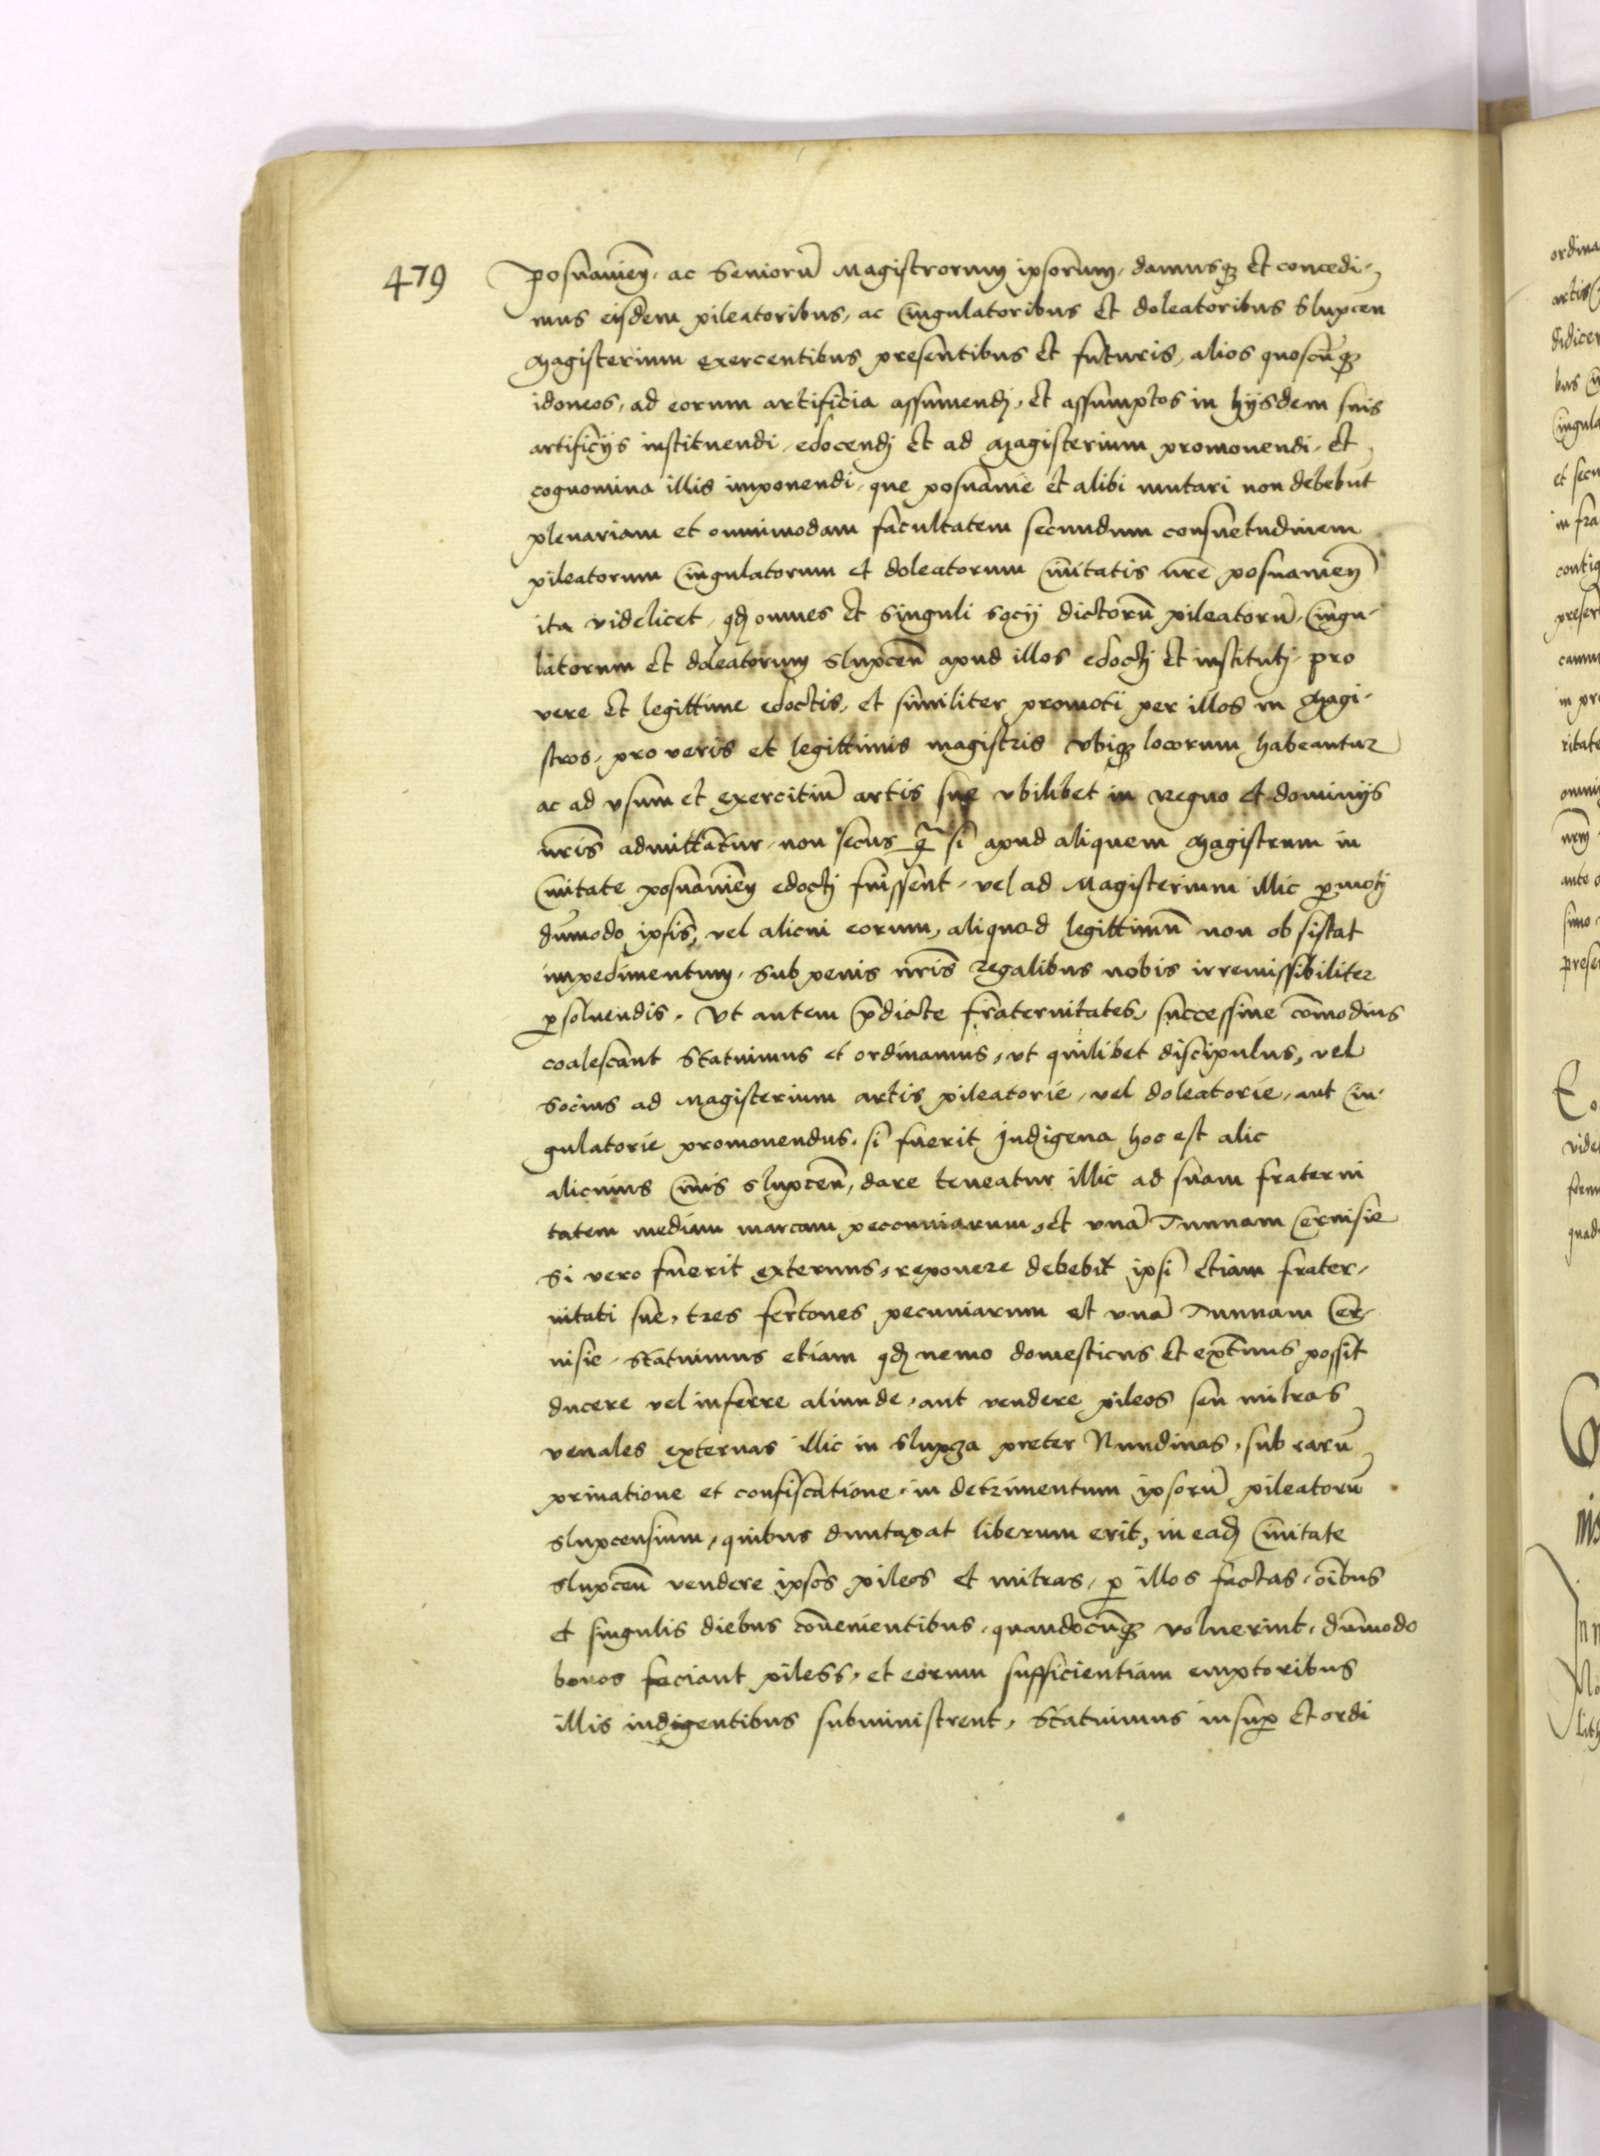 479
posnanien̄. ac Seniorū Magistrorum ipsorum, damusqȝ et concedi-
mus eisdem pileatoribus, ac Cingulatoribus et doleatoribus Slupcen
Magisterium exercentibus presentibus et futuris, alios quoscūqȝ
idoneos, ad eorum artificia assumendj, et assumptos in hijsdem suis
artificijs instituendi, edocendj et ad Magisterium promouendi, et
cognomina illis imponendi, que posnanie et alibi mutari non debebūt
plenariam et omnimodam facultatem secundum consuetudinem
pileatorum Cingulatorum et doleatorum Ciuitatis nr̄e posnanien̄
ita videlicet, qđ omnes et Singuli Socij dictorū pileatorū, Cingu-
latorum et doleatorum Slupcen̄ apud illos edoctj et institutj, pro
vere et legittime edoctis, et similiter promoti per illos in Magi-
stros, pro veris et legittimis magistris vbiqȝ locorum habeantur
ac ad vsum et exercitiū artis sue vbilibet in Regno et dominijs
nr̄is admittātur, non secus q̄ si apud aliquem Magistrum in
Ciuitate posnanien̄ edoctj fuissent, vel ad Magisterium illic ꝑmotj
dūmodo ipsis, vel alicui eorum, aliquod legittimū non obsistat
impedimentum, Sub penis nr̄is regalibus nobis irremissibiliter
ꝑsoluendis. Vt autem p̄dicte fraternitates, successiue cōmodius
coalescant Statuimus et ordinamus, vt quilibet discipulus, vel
Socius ad Magisterium artis pileatorie, vel doleatorie, aut Cin-
gulatorie promouendus, si fuerit Indigena hoc est alic
alicuius Ciuis Slupcen̄, dare teneatur illic ad suam fraterni
tatem mediam marcam peccuniarum, et vnā Tunnam Ceruisie
Si vero fuerit externus, reponere debebit ipsi etiam frater-
nitati sue, tres fertones pecuniarum et vnā Tunnam Cer-
uisie, Statuimus etiam qđ nemo domesticus et ext̄nus possit
ducere vel inferre aliunde, aut vendere pileos seu mitras
venales externas illic in Slupza preter Nundinas, sub earū
priuatione et confiscatione, in detrimentum ipsorū pileatorū
Slupcensium, quibus duntaxat liberum erit, in eađ Ciuitate
Slupcen̄ vendere ipsos pileos et mitras, ꝑ illos factas, oībus
et singulis diebus cōuenientibus, quandocūqȝ voluerint, dūmodo
bonos faciant pileos, et eorum sufficientiam emptoribus
illis indigentibus subministrent, Statuimus insuꝑ et ordi